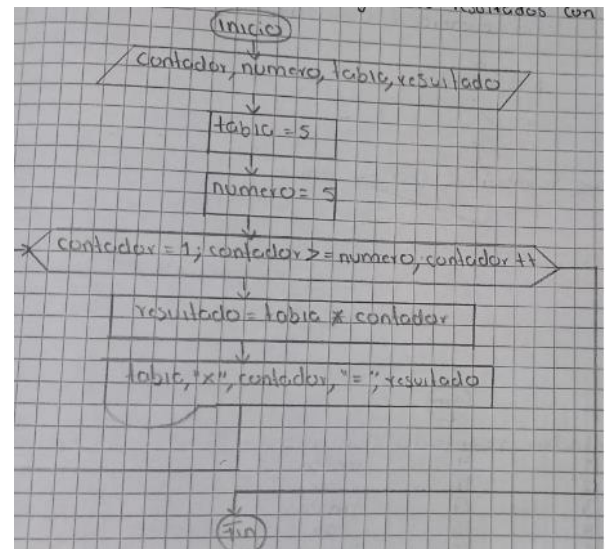 resultados con
Inicio
contador, numero, tabla, resultado
tabla = 5
numero = 5
contador = 1; contador >= numero, contador ++
resultado = tabla * contador
tabla, "x", contador, "=", resultado
Fin